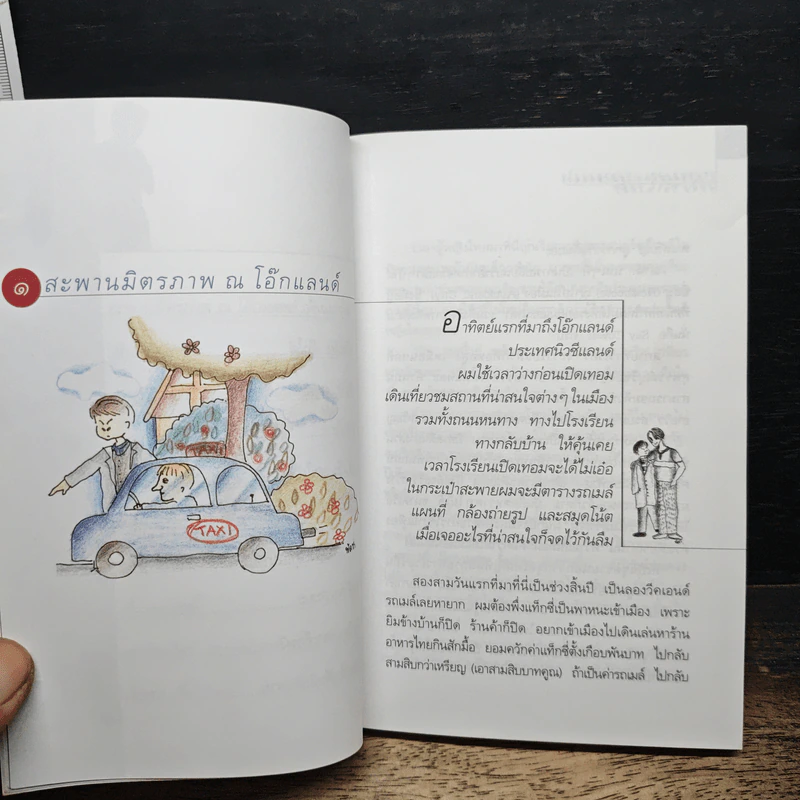 ๑ สะพานมิตรภาพ ณ โอ๊กแลนด์
TAXI
TAXI
อาทิตย์แรกที่มาถึงโอ๊กแลนด์
ประเทศนิวซีแลนด์
ผมใช้เวลาว่างก่อนเปิดเทอม
เดินเที่ยวชมสถานที่น่าสนใจต่างๆ ในเมือง
รวมทั้งถนนหนทาง ทางไปโรงเรียน
ทางกลับบ้าน ให้คุ้นเคย
เวลาโรงเรียนเปิดเทอมจะได้ไม่เอ๋อ
ในกระเป๋าสะพายผมจะมีตารางรถเมล์
แผนที่ กล้องถ่ายรูป และสมุดโน้ต
เมื่อเจออะไรที่น่าสนใจก็จดไว้กันลืม
สองสามวันแรกที่มาที่นี่เป็นช่วงสิ้นปี เป็นลองวีคเอนด์
รถเมล์เลยหายาก ผมต้องพึ่งแท็กซี่เป็นพาหนะเข้าเมือง เพราะ
ยิมข้างบ้านก็ปิด ร้านค้าก็ปิด อยากเข้าเมืองไปเดินเล่นหาร้าน
อาหารไทยกินสักมื้อ ยอมควักค่าแท็กซี่ตั้งเกือบพันบาท ไปกลับ
สามสิบกว่าเหรียญ (เอาสามสิบบาทคูณ) ถ้าเป็นค่ารถเมล์ ไปกลับ